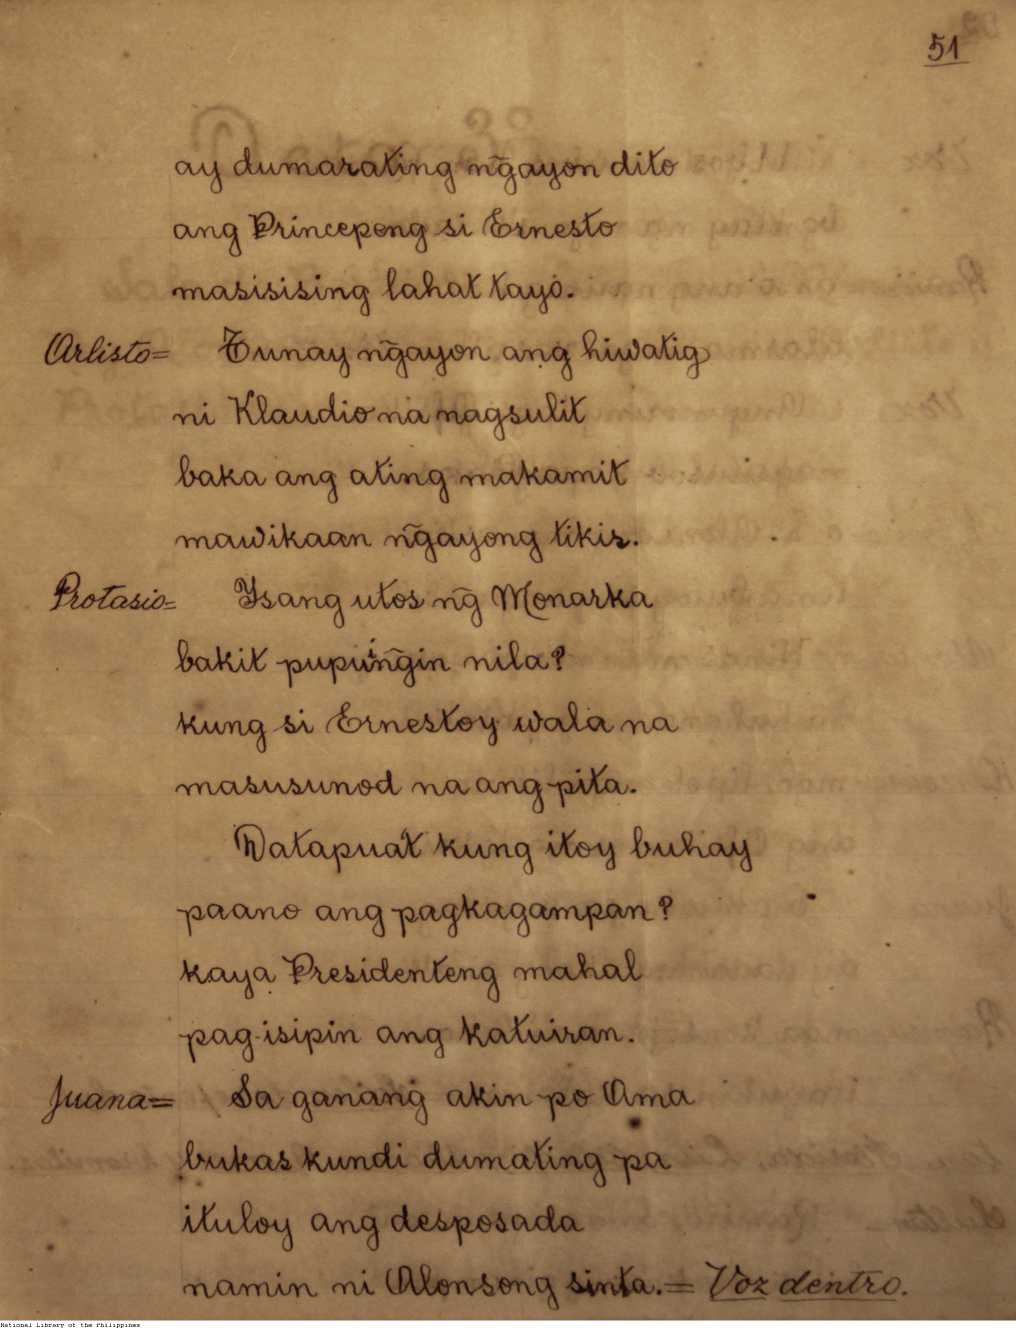 51
ay dumarating ñgayon dito
ang Princepeng si Ernesto
masisising lahat tayo.
Arlisto= Tunay ñgayon ang hiwatig
ni Klaudio na nagsulit
baka ang ating makamit
mawikaan ñgayong tikis.
Protasio= Ysang utos ñg Monarka
bakit pupuiñgin nila?
kung si Ernestoy wala na
masusunod na ang pita.
Datapua't kung itoy buhay
paano ang pagkagampan?
kaya Presidenteng mahal
pag-isipin ang katuiran.
Juana= Sa ganang akin po Ama
bukas kundi dumating pa
ituloy ang desposada
namin ni Alonsong sinta.= Voz dentro.
National Library of the Philippines